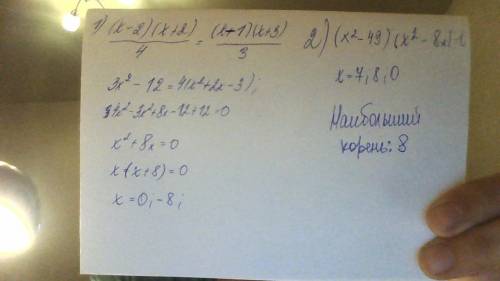 1) (x-2)(x+2)/4 = (x-1)(x+3)/3
3x²-12=4(x²+2x-3);
4x²-3x²+8x-12+12=0
x²+8x=0
x(x+8)=0
x=0;-8;
2) (x²-49)(x²-8x)
x=7;8;0
Наибольший
корень: 8